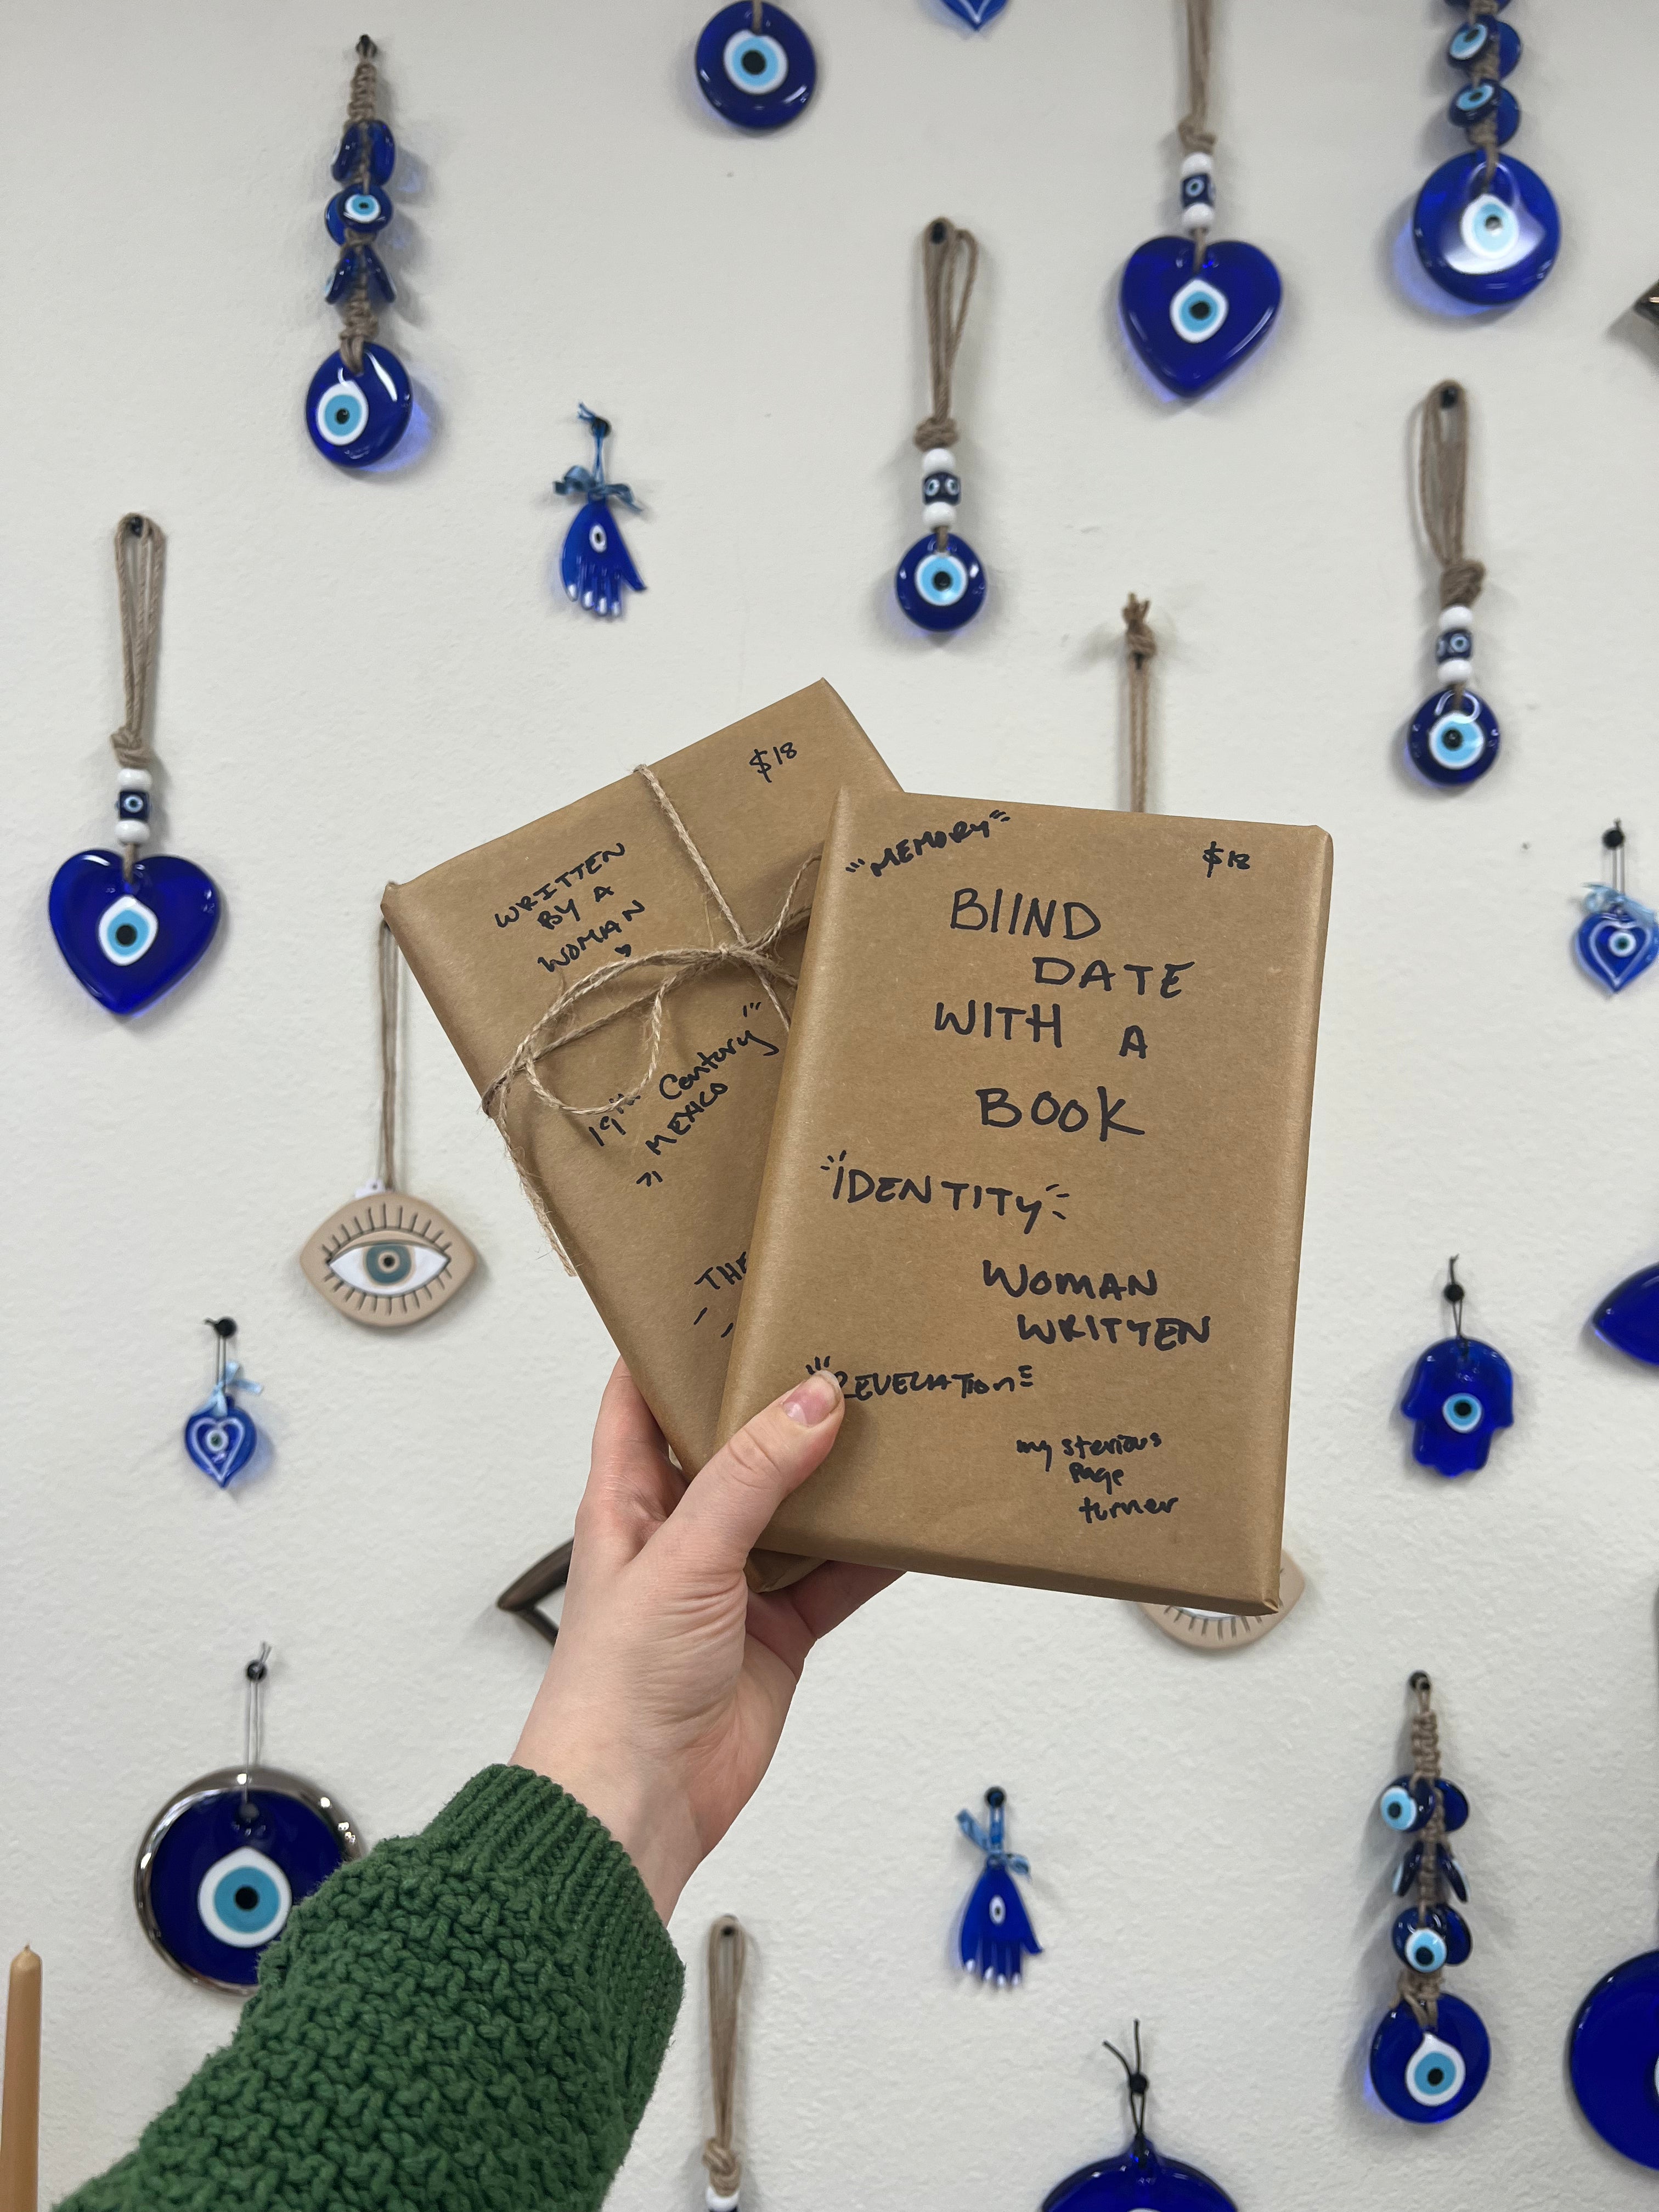 $18
WRITTEN
BY A
WOMAN
19th Century
MEXICO
THE
"MEMORY"
$18
BlIND
DATE
WITH A
BOOK
IDENTITY
WOMAN
WRITTEN
REVELATION
mysterious
Page
turner